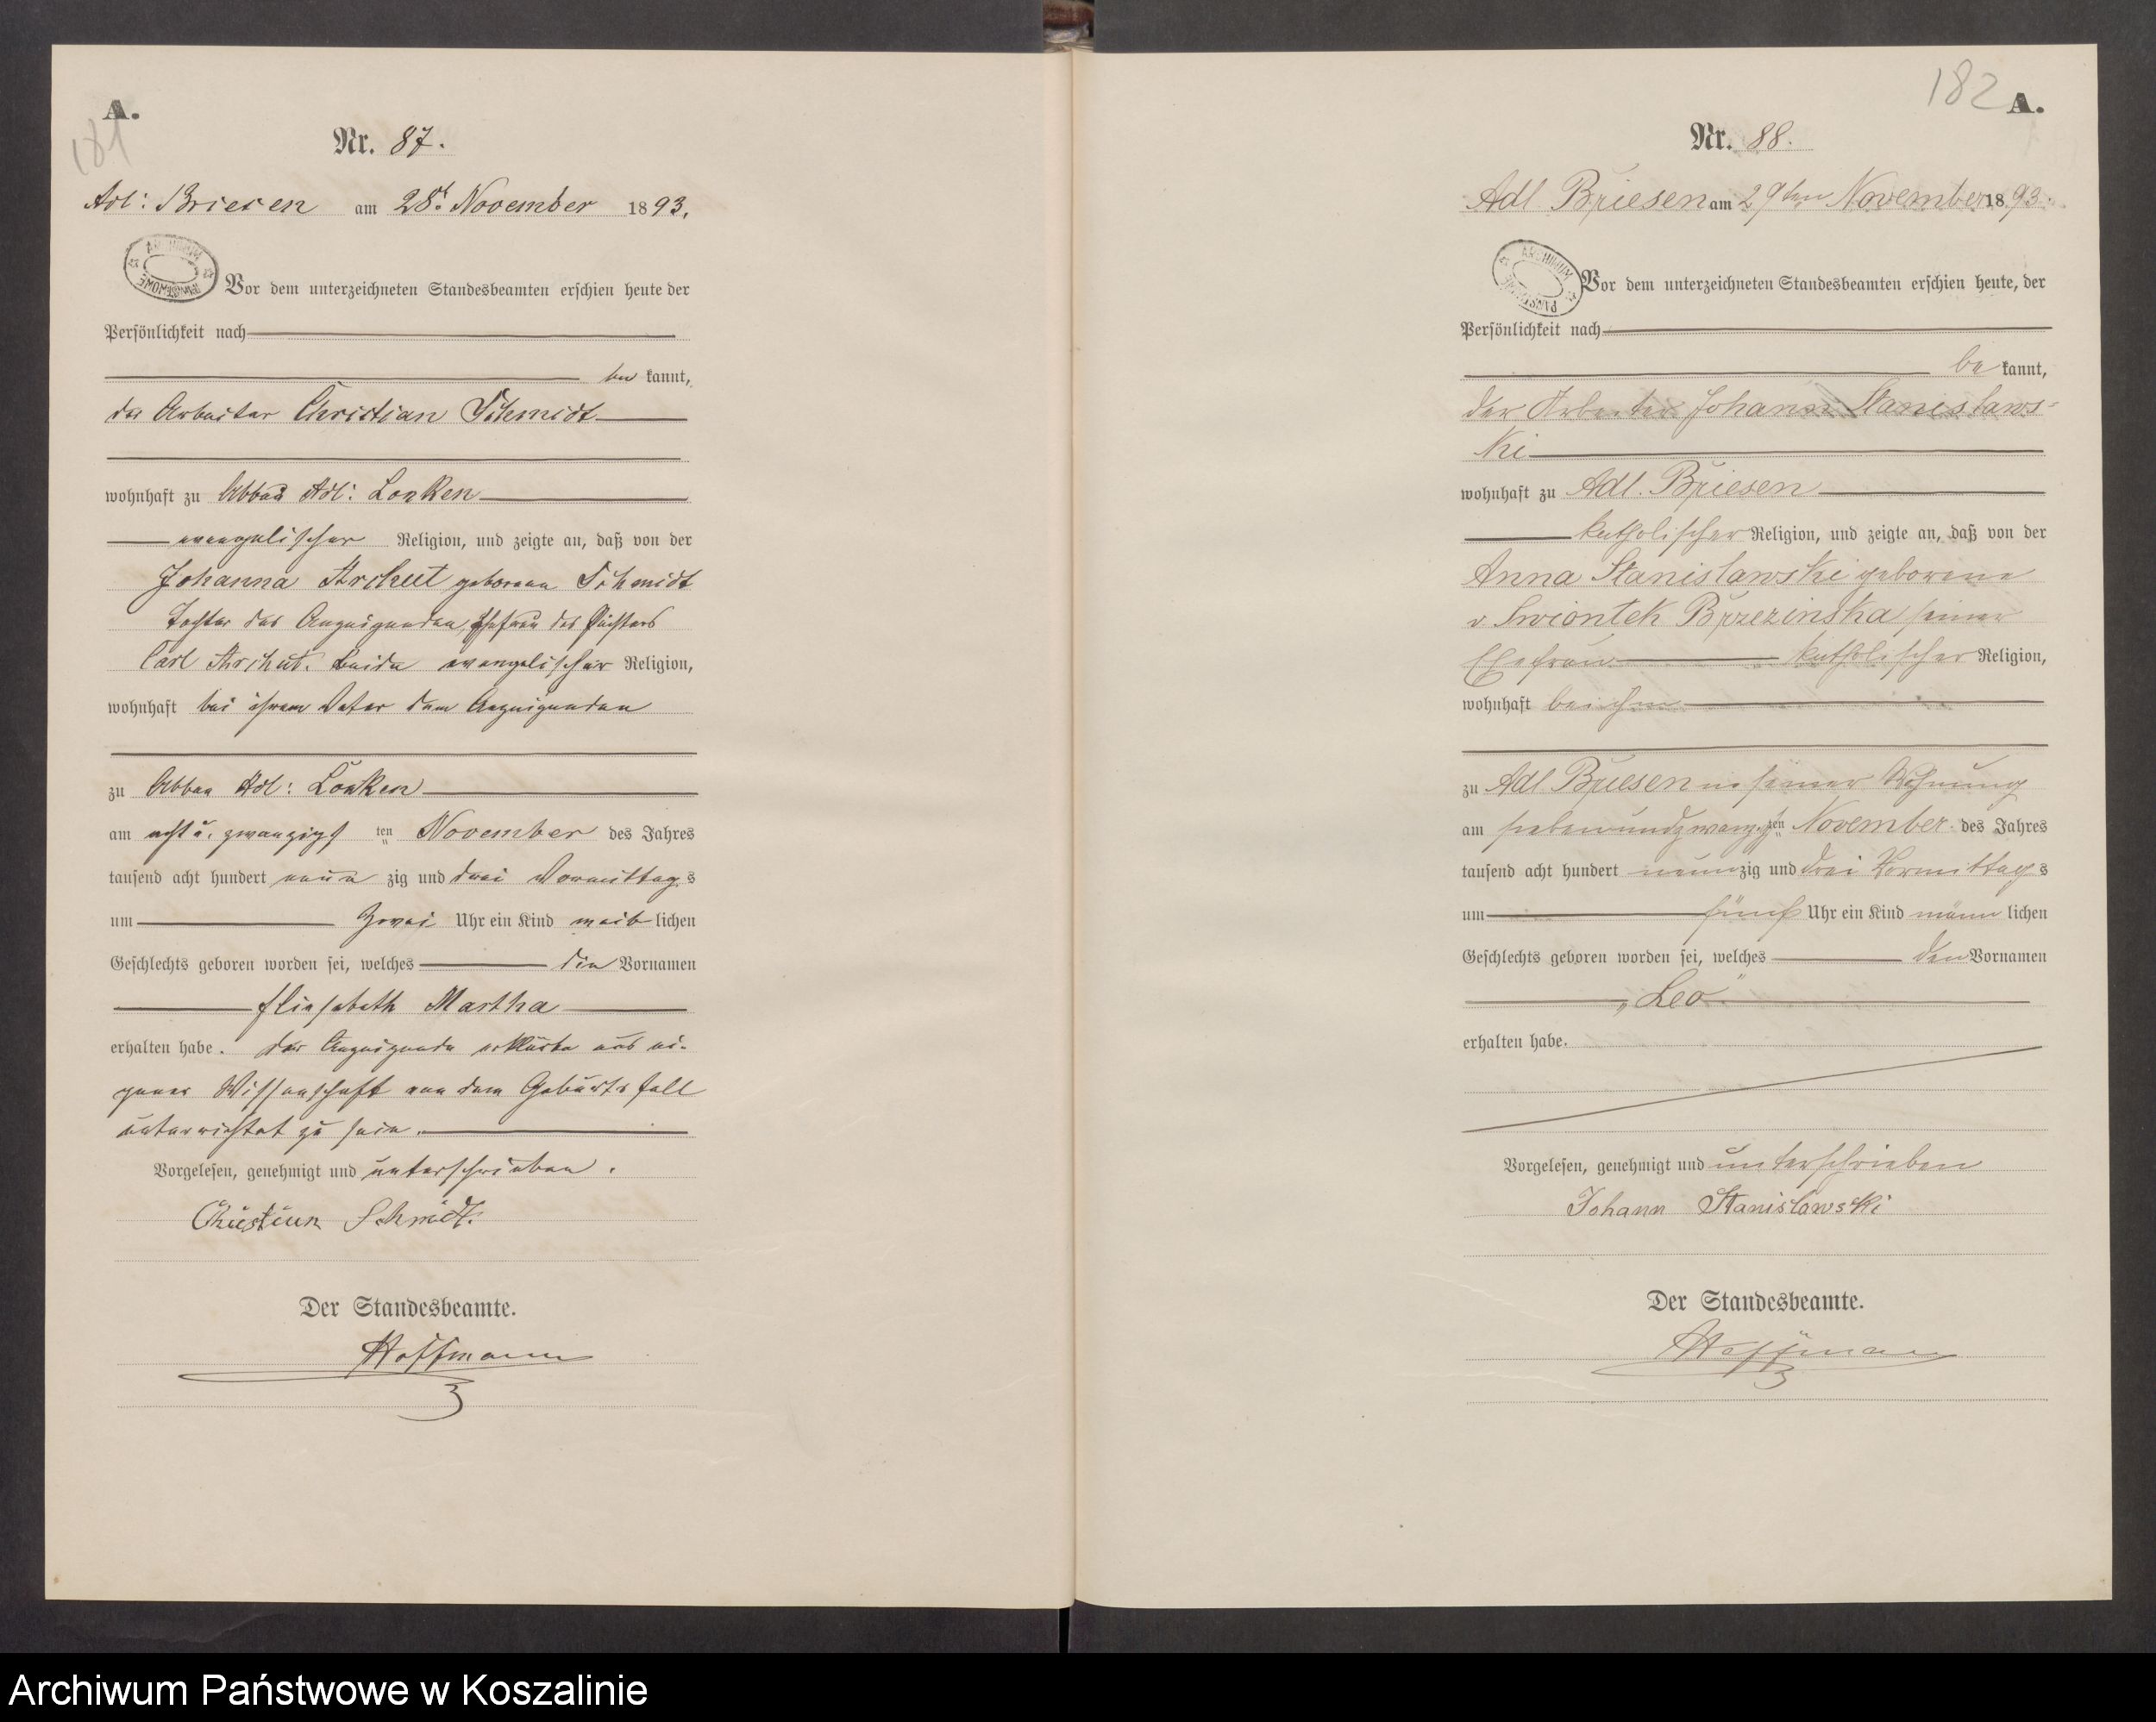 A.
181
Nr. 87.
Adl: Briesen am 28t. November 1893.
ARCHIWUM PAŃSTWOWE
Vor dem unterzeichneten Standesbeamten erschien heute der
Persönlichkeit nach
be kannt,
der Arbeiter Christian Schmidt
wohnhaft zu Abbau Adl: Lonken
evangelischer Religion, und zeigte an, daß von der
Johanna Archut geborene Schmidt
Tochter des Anzeigenden, Ehefrau des
Carl Archut. beide evangelischer Religion,
wohnhaft bei ihrem Vater dem Anzeigenden
zu Abbau Adl: Lonken
am acht u. zwanzigs ten November des Jahres
tausend acht hundert neun zig und drei Vormittags
um Zwei Uhr ein Kind weib lichen
Geschlechts geboren worden sei, welches die Vornamen
Eliesabeth Martha
erhalten habe. Der Anzeigende erklärte aus ei-
gener Wissenschaft von dem Geburtsfall
unterrichtet zu sein.
Vorgelesen, genehmigt und unterschrieben.
Christian Schmidt.
Der Standesbeamte.
Hoffmann
182
A.
Nr. 88.
Adl Briesen am 29ten November 1893.
ARCHIWUM PAŃSTWOWE
Vor dem unterzeichneten Standesbeamten erschien heute, der
Persönlichkeit nach
be kannt,
der Arbeiter Johann Stanislaws-
ki
wohnhaft zu Adl. Briesen
katholischer Religion, und zeigte an, daß von der
Anna Stanislawski geborene
v. Swiontek Brzezinska seiner
Ehefrau katholischer Religion,
wohnhaft bei ihm
zu Adl. Briesen in seiner Wohnung
am siebenundzwanzigs ten November des Jahres
tausend acht hundert neun zig und drei Vormittags
um fünf Uhr ein Kind männ lichen
Geschlechts geboren worden sei, welches den Vornamen
„Leo"
erhalten habe.
Vorgelesen, genehmigt und unterschrieben
Johann Stanislowski
Der Standesbeamte.
Hoffmann
Archiwum Państwowe w Koszalinie